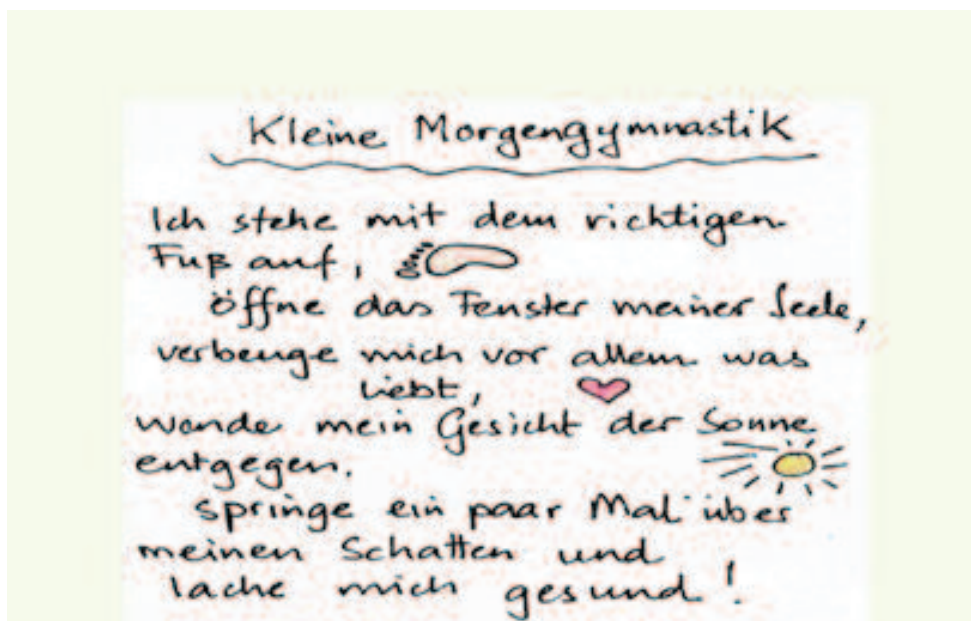 Kleine Morgengymnastik
Ich stehe mit dem richtigen
Fuß auf,
öffne das Fenster meiner Seele,
verbeuge mich vor allem was
liebt,
wende mein Gesicht der Sonne
entgegen.
springe ein paar Mal über
meinen Schatten und
lache mich gesund!